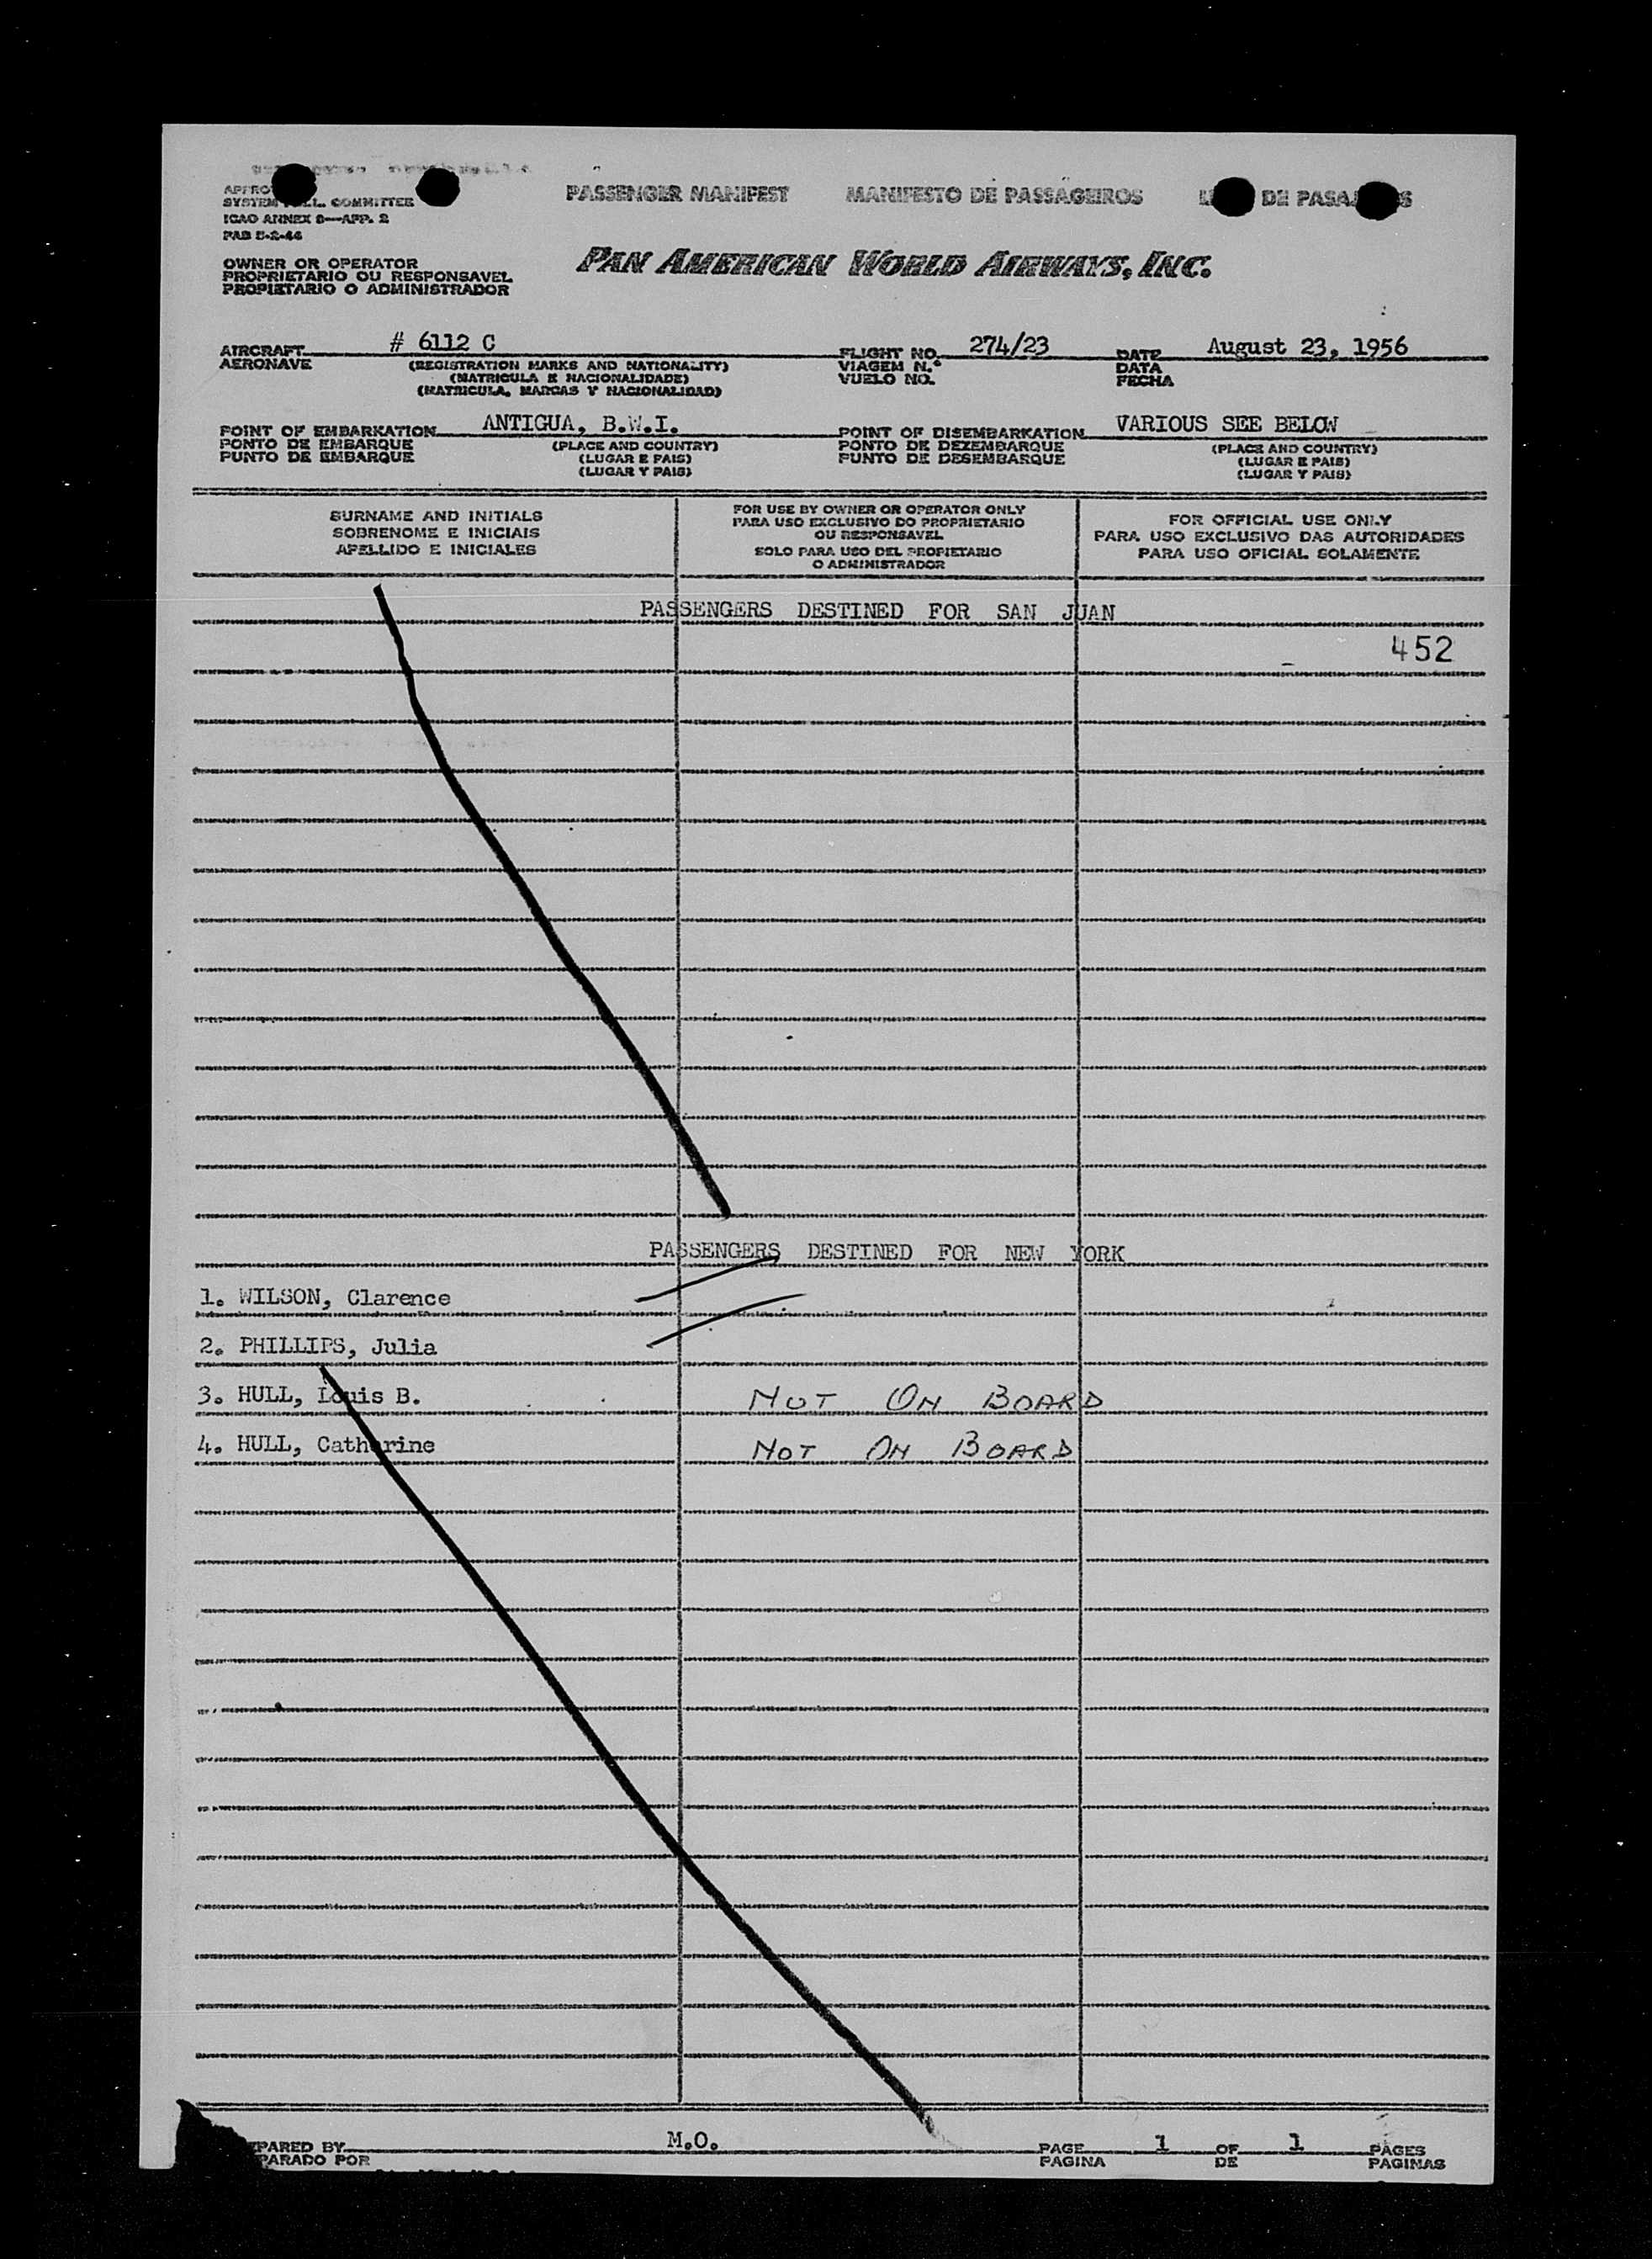 PASSENGER MANIFEST MANIFESTO DE PASSAGEIROS DE
SYSTEM COMMITTEE
ICAO ANNEX 9—APP. 2
PAB 5-2-44
OWNER OR OPERATOR
PROPRIETARIO OU RESPONSAVEL
PROPIETARIO O ADMINISTRADOR
PAN AMERICAN WORLD AIRWAYS, INC.
AIRCRAFT # 6112 C FLIGHT NO. 274/23 DATE August 23, 1956
AERONAVE (REGISTRATION MARKS AND NATIONALITY) VIAGEM N.º DATA
(MATRICULA E NACIONALIDADE) VUELO NO. FECHA
(MATRICULA, MARCAS Y NACIONALIDAD)
POINT OF EMBARKATION ANTIGUA, B.W.I. POINT OF DISEMBARKATION VARIOUS SEE BELOW
PONTO DE EMBARQUE (PLACE AND COUNTRY) PONTO DE DEZEMBARQUE (PLACE AND COUNTRY)
PUNTO DE EMBARQUE (LUGAR E PAIS) PUNTO DE DESEMBARQUE (LUGAR E PAIS)
(LUGAR Y PAIS) (LUGAR Y PAIS)
SURNAME AND INITIALS
SOBRENOME E INICIAIS
APELLIDO E INICIALES
FOR USE BY OWNER OR OPERATOR ONLY
PARA USO EXCLUSIVO DO PROPRIETARIO
OU RESPONSAVEL
SOLO PARA USO DEL PROPIETARIO
O ADMINISTRADOR
FOR OFFICIAL USE ONLY
PARA USO EXCLUSIVO DAS AUTORIDADES
PARA USO OFICIAL SOLAMENTE
PASSENGERS DESTINED FOR SAN JUAN
452
PASSENGERS DESTINED FOR NEW YORK
1. WILSON, Clarence
2. PHILLIPS, Julia
3. HULL, Louis B. NOT ON BOARD
4. HULL, Catherine NOT ON BOARD
M.O.
BY PAGE 1 OF 1 PAGES
POR PAGINA DE PAGINAS